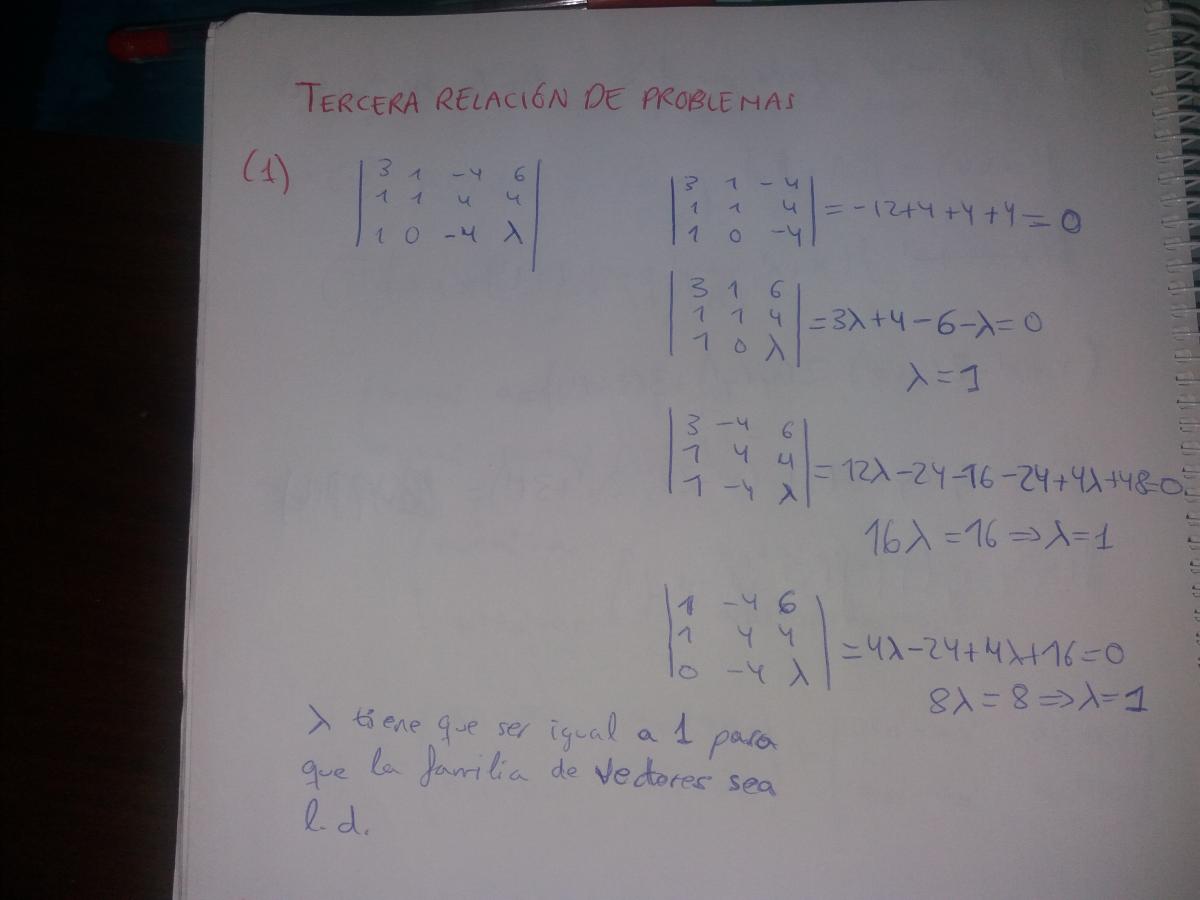 TERCERA RELACIÓN DE PROBLEMAS
(1)
| 3 1 -4 6 |
| 1 1 4 4 |
| 1 0 -4 λ |
| 3 1 -4 |
| 1 1 4 | = -12+4+4+4 = 0
| 1 0 -4 |
| 3 1 6 |
| 1 1 4 | = 3λ+4-6-λ=0
| 1 0 λ |
λ=1
| 3 -4 6 |
| 1 4 4 | = 12λ-24-16-24+4λ+48=0
| 1 -4 λ |
16λ=16 ⇒ λ=1
| 1 -4 6 |
| 1 4 4 | = 4λ-24+4λ+16=0
| 0 -4 λ |
8λ=8 ⇒ λ=1
λ tiene que ser igual a 1 para
que la familia de vectores sea
l.d.